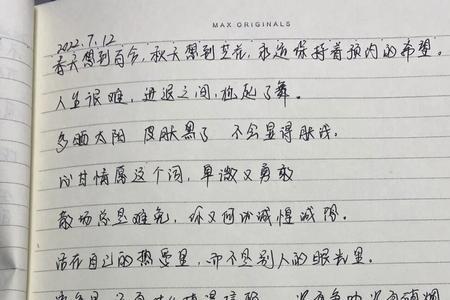 MAX ORIGINALS
2022.7.12
春天想到百合,秋天想到兰花,永远保持着预内的希望。
人生很难,进退之间,抱起了舞。
多晒太阳 皮肤黑了 不会显得肤浅。
心甘情愿这个词,卑微又勇敢
散场总是难免,你又何必诚惶诚恐。
活在自己的热爱里,而不是别人的眼光里。